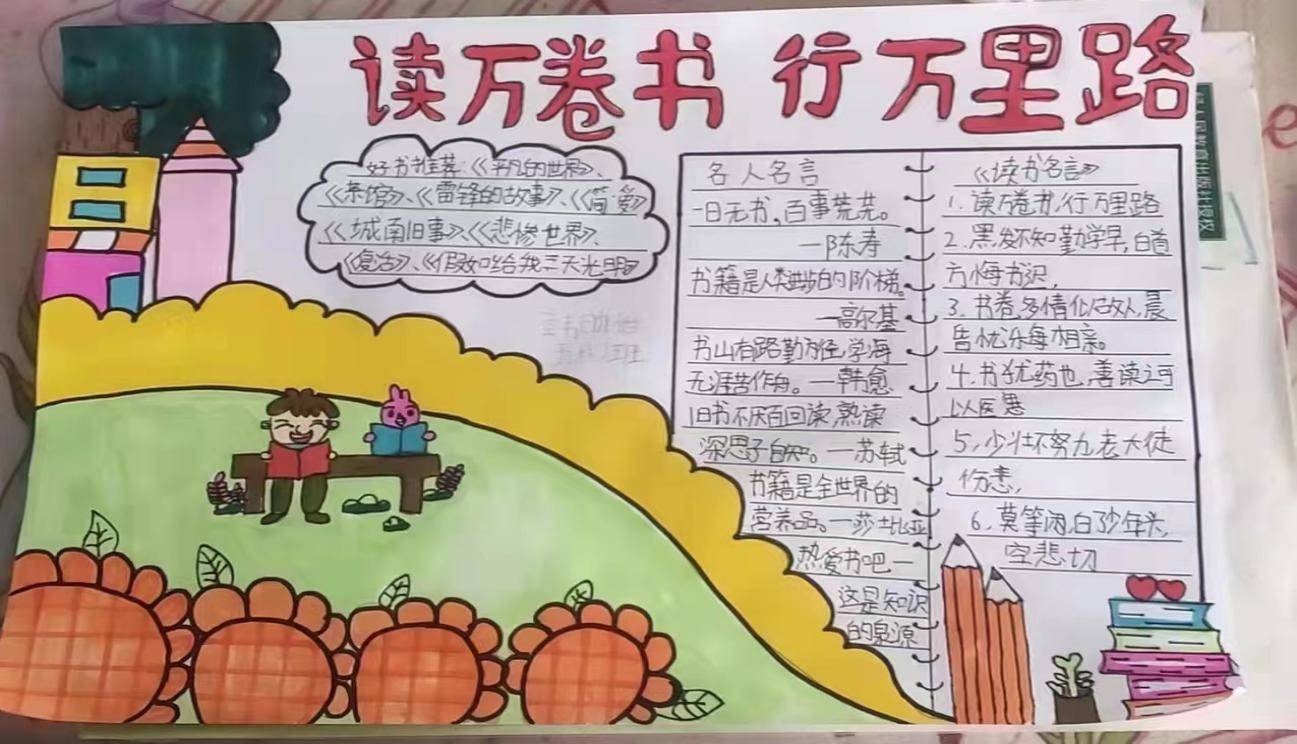 读万卷书 行万里路
好书推荐:《平凡的世界》、
《茶馆》、《雷锋的故事》、《简·爱》
《城南旧事》、《悲惨世界》、
《复活》、《假如给我三天光明》
名人名言
一日无书,百事荒芜。
—陈寿
书籍是人类进步的阶梯。
—高尔基
书山有路勤为径,学海
无涯苦作舟。—韩愈
旧书不厌百回读,熟读
深思子自知。—苏轼
书籍是全世界的
营养品。—莎士比亚
热爱书吧—
这是知识
的泉源
《读书名言》
1.读万卷书,行万里路
2.黑发不知勤学早,白首
方悔书迟,
3.书卷多情似故人,晨
昏忧乐每相亲。
4.书犹药也,善读之可
以医愚
5,少壮不努力老大徒
伤悲,
6,莫等闲,白了少年头,
空悲切
人民教育出版社授权